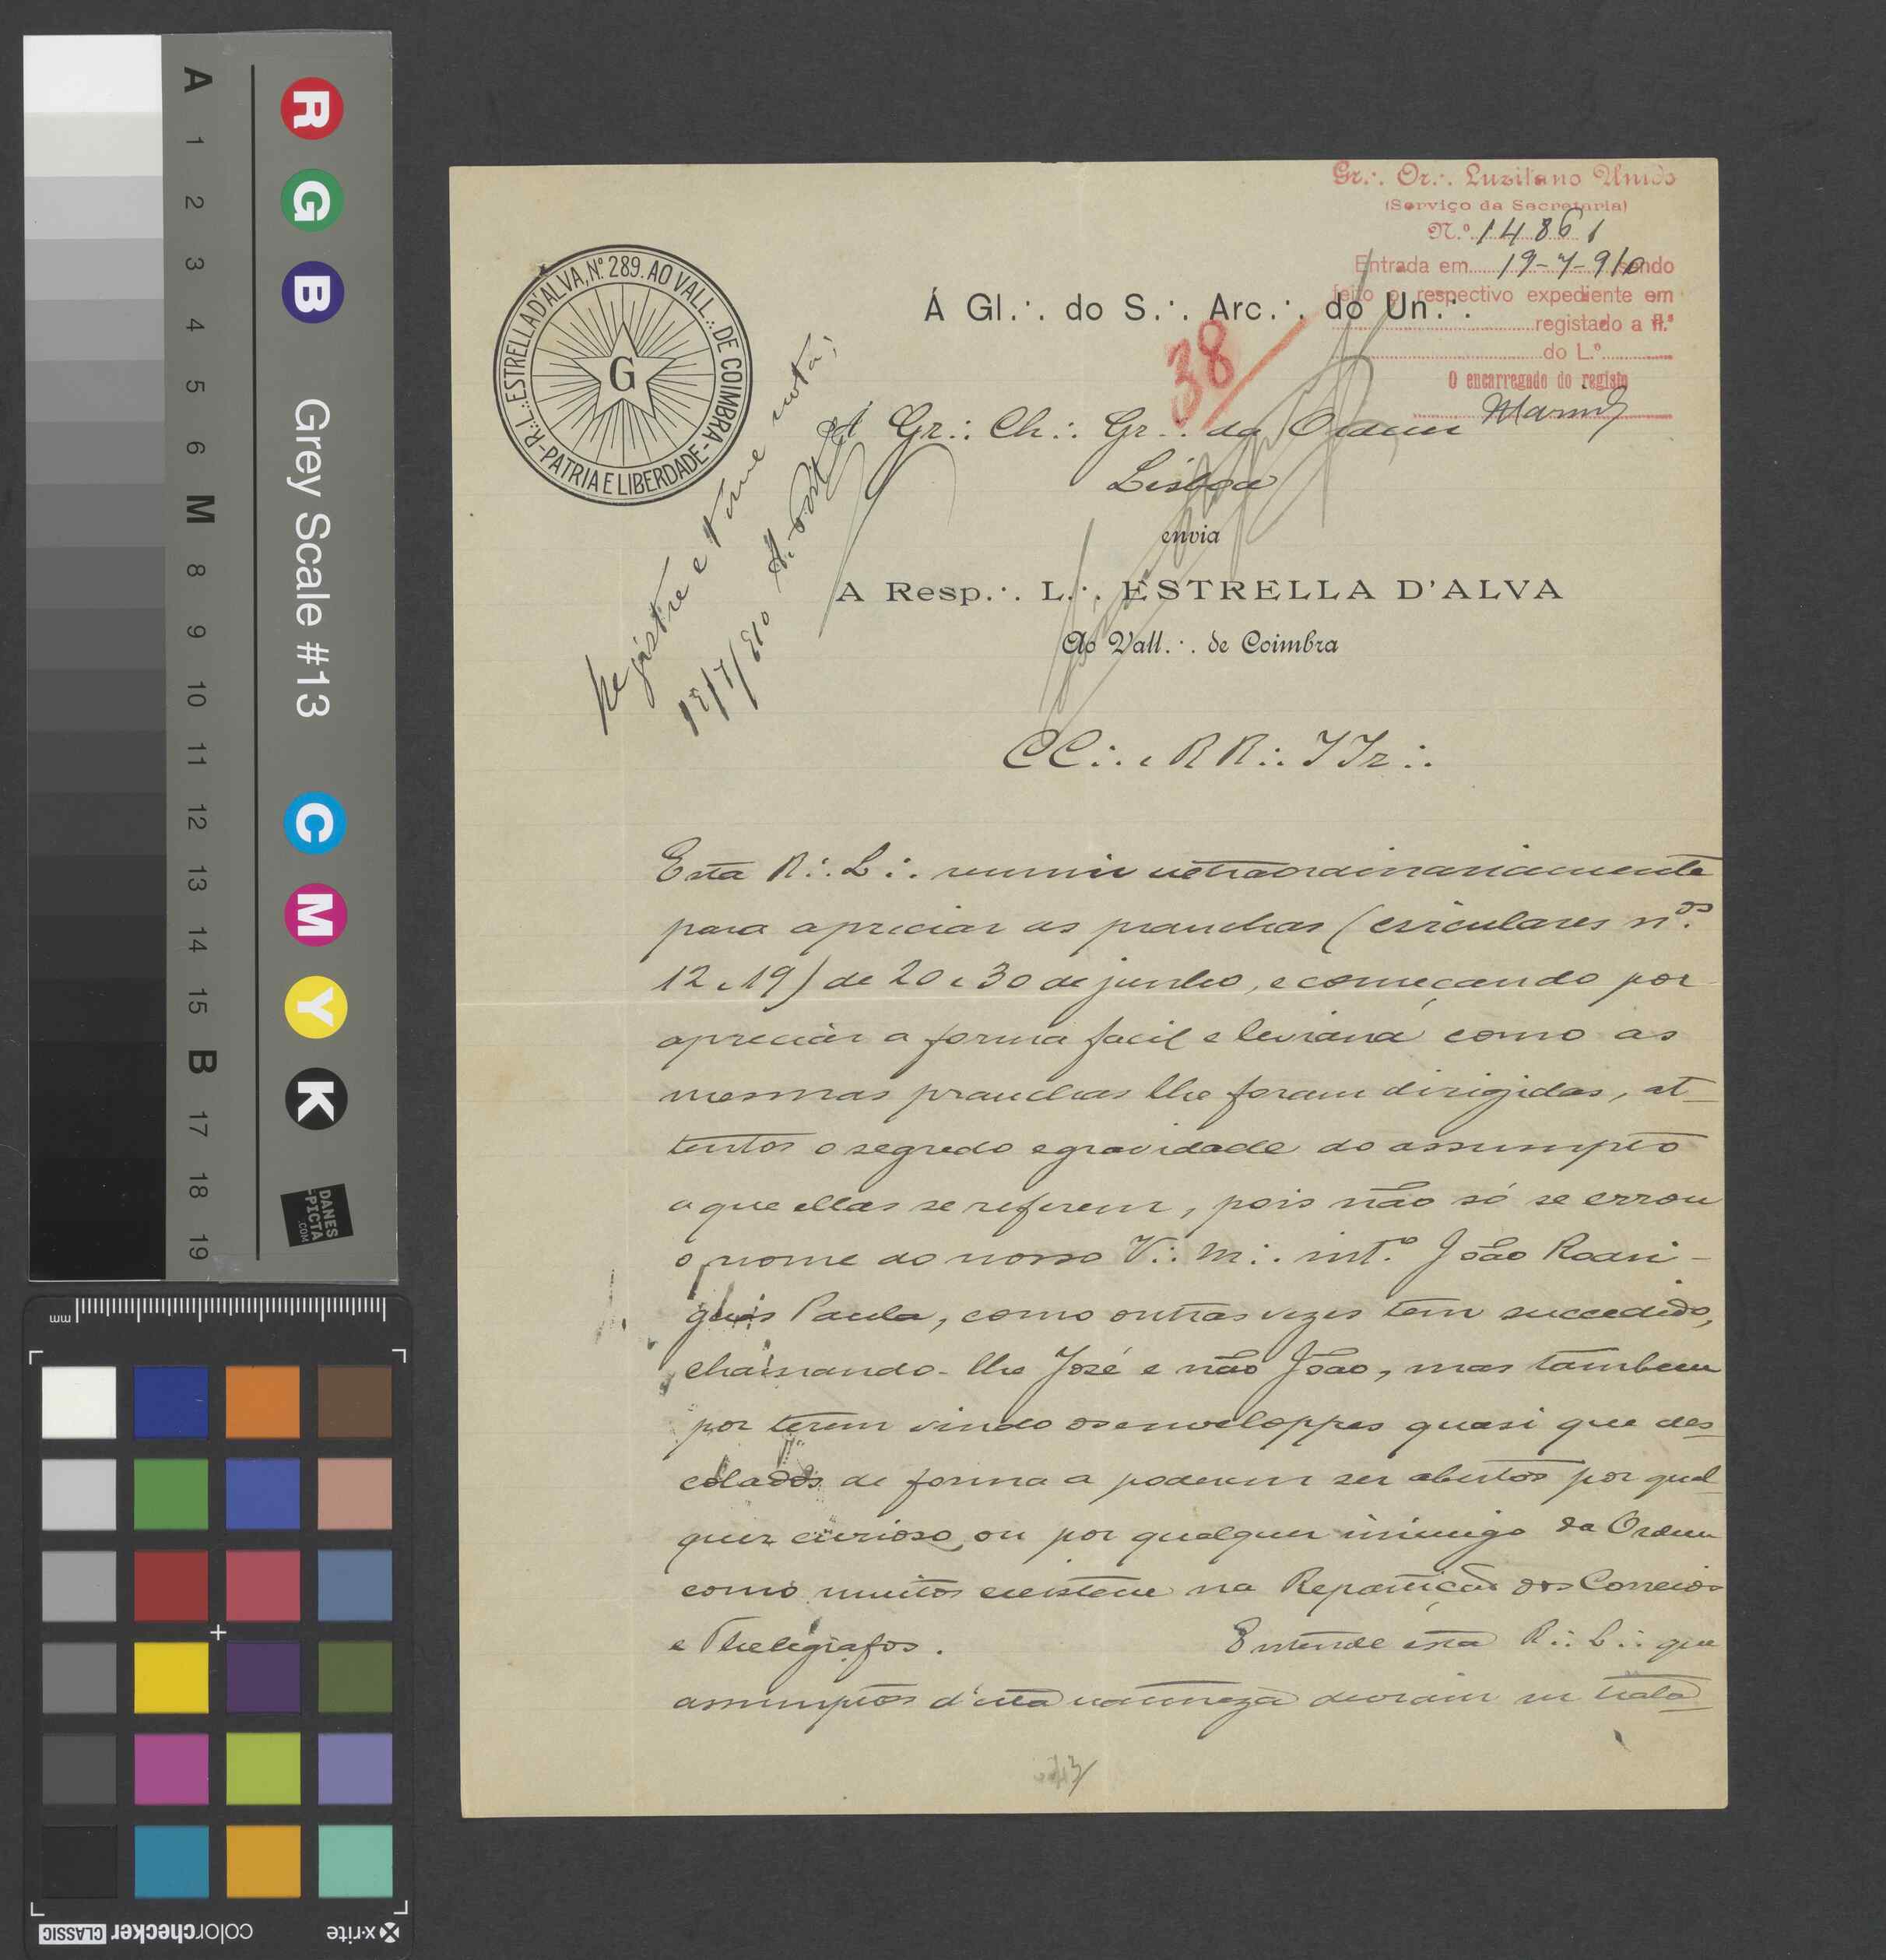 Gr∴ Or∴ Luzitano Unido
(Serviço da Secretaria)
N.º 14861
Entrada em 19-7-910 sendo
feito o respectivo expediente em
registado a fl.ª
do L.º
O encarregado do registo
R∴L∴ESTRELLA D'ALVA, Nº 289. AO VALL∴ DE COIMBRA
PATRIA E LIBERDADE
G
Á Gl∴ do S∴ Arc∴ do Un∴
38
Registre e tome nota;
Gr∴ Ch∴ Gr∴ da Ordem
Lisboa
envia
A Resp∴ L∴ ESTRELLA D'ALVA
Ao Vall∴ de Coimbra
CC∴ e RR∴ IIr∴
Esta R∴ L∴ reuniu extraordinariamente
para apreciar as pranchas (circulares n.os
12 e 19) de 20 e 30 de junho, e começando por
apreciar a forma facil e leviana como as
mesmas pranchas lhe foram dirigidas, at-
tentos o segredo e gravidade do assumpto
a que ellas se referem, pois não só se errou
o nome do nosso V∴ M∴ int.º João Rodri-
gues Paula, como outras vezes tem succedido,
chamando-lhe José e não João, mas tambem
por terem vindo os enveloppes quasi que des-
colados de forma a poderem ser abertos por qual-
quer curioso, ou por qualquer inimigo da Ordem
como muitos existem na Repartição dos Correios
e Thelegrafos. Entende esta R∴ L∴ que
assumptos d'esta natureza deviam ser trata-
A
1
2
3
4
5
6
M
8
9
10
11
12
13
14
15
B
17
18
19
R
G
B
Grey Scale #13
C
M
Y
K
DANES
-PICTA
.COM
mm
x-rite
colorchecker CLASSIC